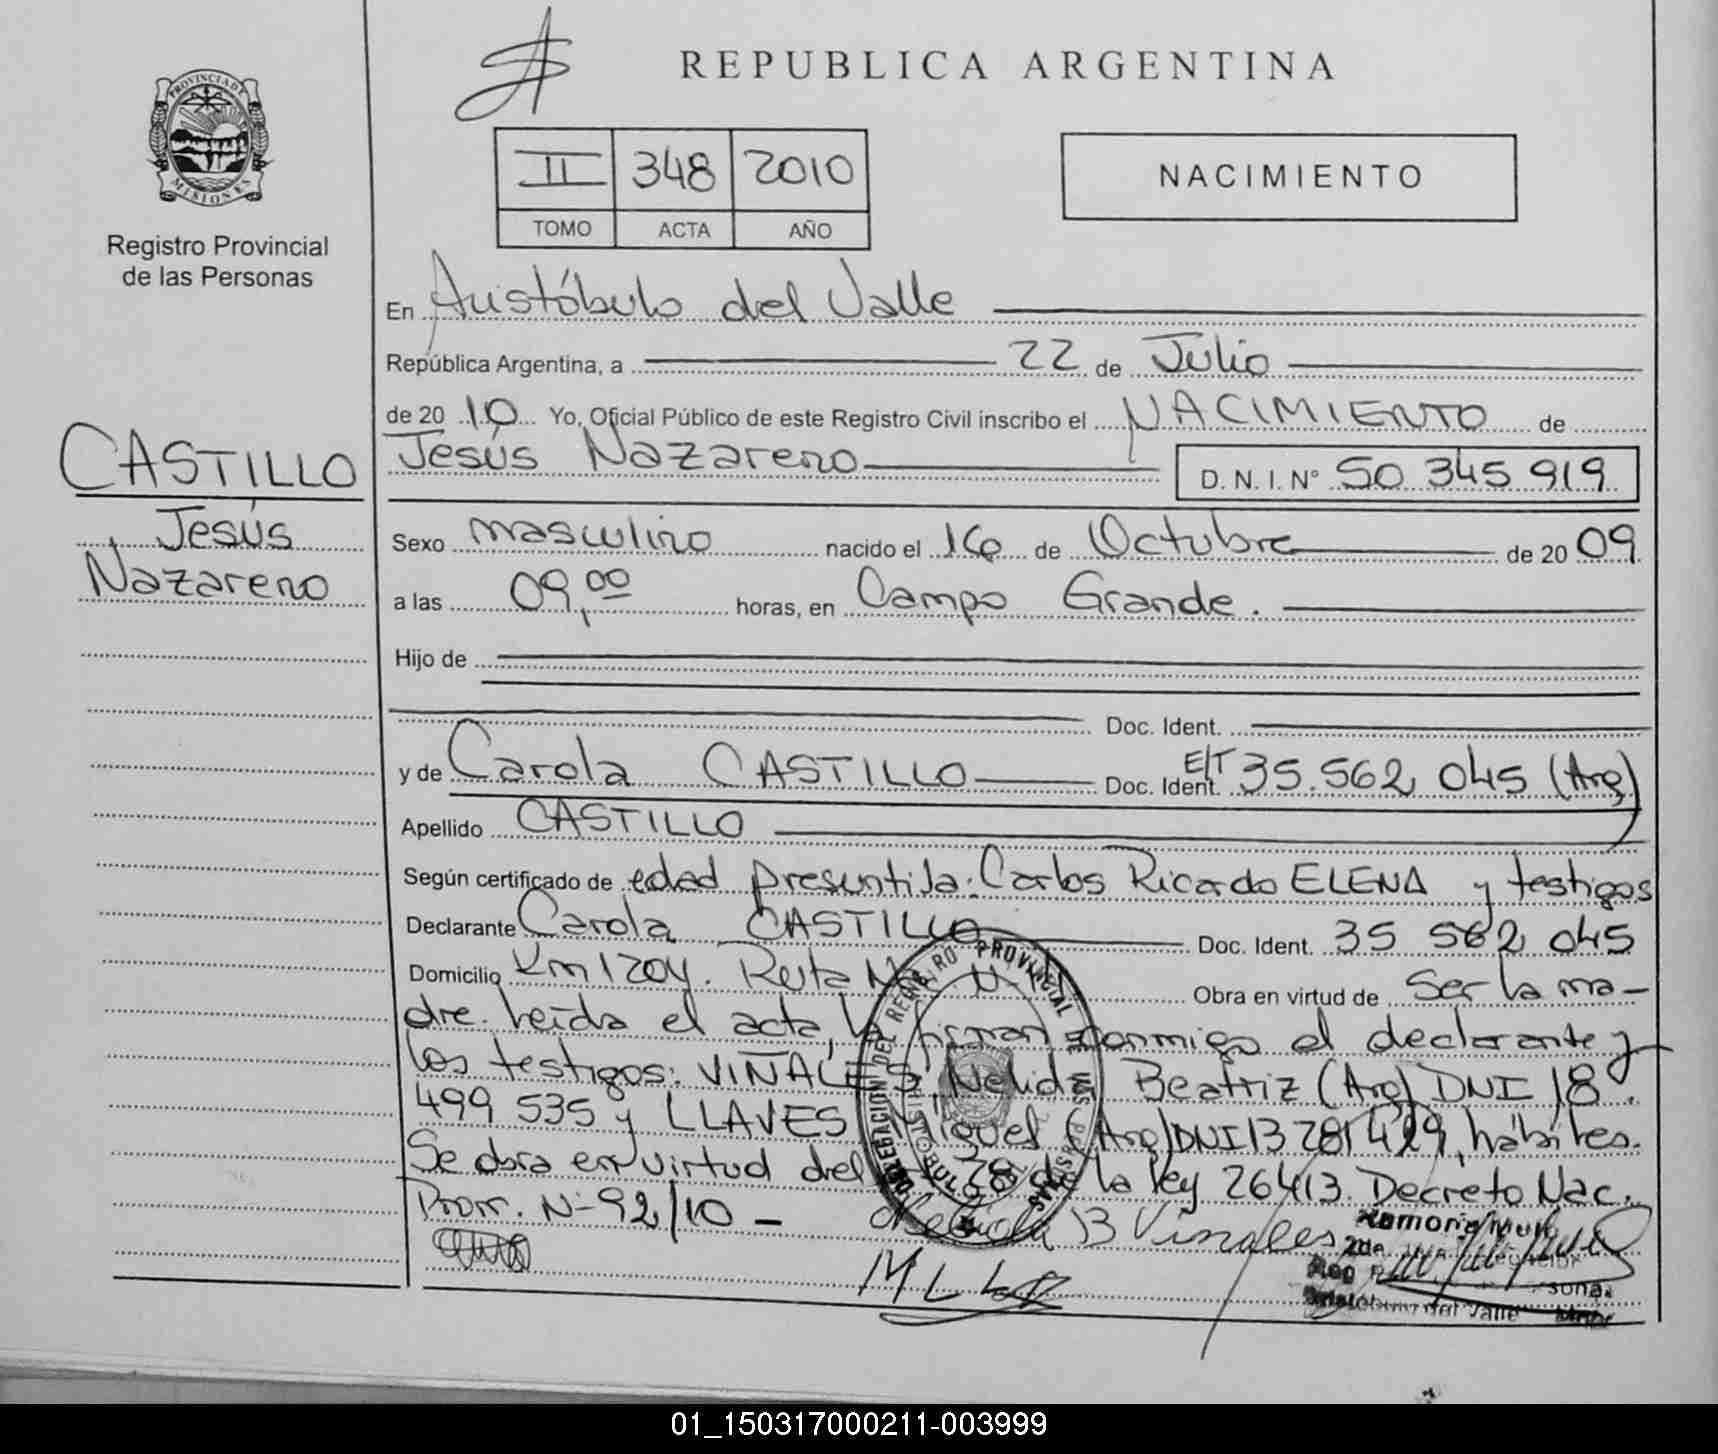 REPUBLICA ARGENTINA
PROVINCIA DE MISIONES
Registro Provincial
de las Personas
II 348 2010
TOMO ACTA AÑO
NACIMIENTO
En Aristóbulo del Valle
República Argentina, a 22 de Julio
de 2010 Yo, Oficial Público de este Registro Civil inscribo el NACIMIENTO de
CASTILLO
Jesús
Nazareno
Jesús Nazareno D. N. I. N° 50 345 919
Sexo masculino nacido el 16 de Octubre de 2009
a las 09,00 horas, en Campo Grande.
Hijo de
Doc. Ident.
y de Carola CASTILLO Doc. Ident. E/T 35.562 045 (Arg)
Apellido CASTILLO
Según certificado de edad presuntila: Carlos Ricardo ELENA y testigos
Declarante Carola CASTILLO Doc. Ident. 35 562 045
Domicilio Km 1204. Ruta Obra en virtud de Ser la ma-
dre. leída el acta, la firman conmigo el declarante y
los testigos: VIÑALES, Nelida Beatriz (Arg) DNI 18.
499 535 y LLAVES Miguel (Arg) DNI 13 281 429, hábiles.
Se obra en virtud del 28 de la ley 26413. Decreto Nac.
Prorr. N- 92/10 -
DELEGACION DEL REGISTRO PROVINCIAL DE LAS PERSONAS
ARISTOBULO
Nelida B Viñales
M LL
01_150317000211-003999